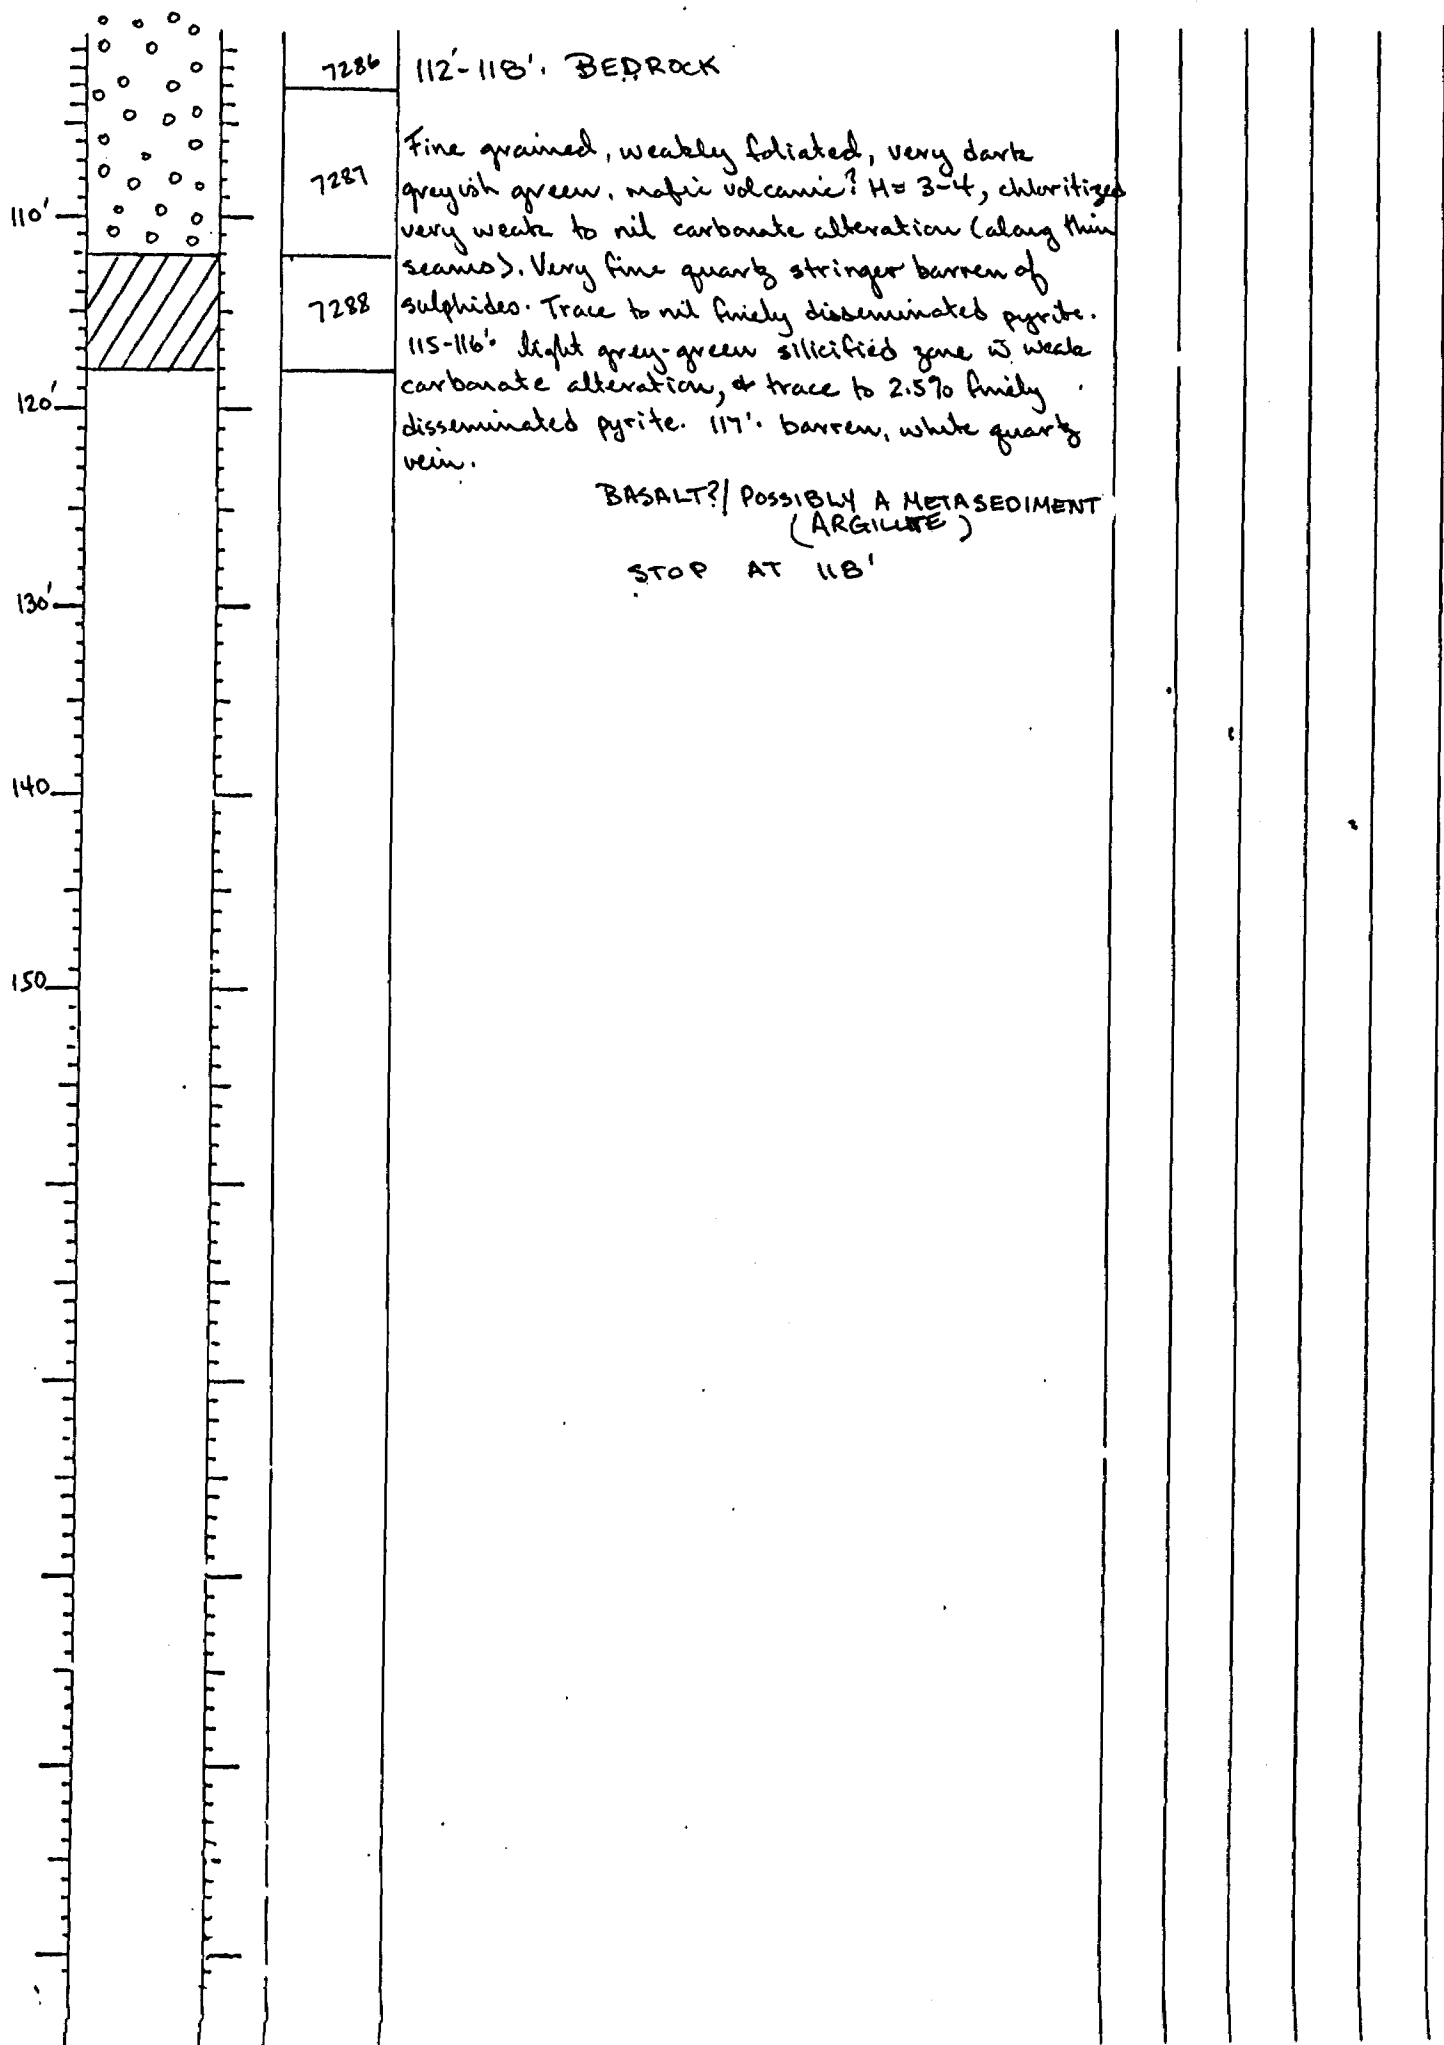 7286
112'-118'. BEDROCK
Fine grained, weakly foliated, very dark
7287
greyish green. mafic volcanic? H= 3-4, chloritized
110'
very weak to nil carbonate alteration (along thin
seams). Very fine quartz stringer barren of
7288
sulphides. Trace to nil finely disseminated pyrite.
115-116'. light grey-green silicified zone w̄ weak
carbonate alteration, & trace to 2.5% finely
120'
disseminated pyrite. 117'. barren, white quartz
vein.
BASALT?/ POSSIBLY A METASEDIMENT
(ARGILLITE)
STOP AT 118'
130'
140
150